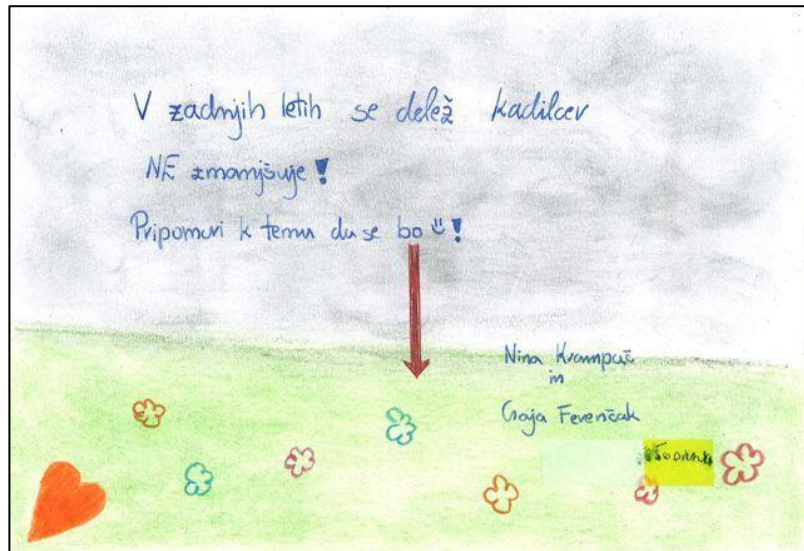 V zadnjih letih se delež kadilcev
NE zmanjšuje!
Pripomori k temu da se bo !
Nina Krampač
in
Gaja Ferenčak